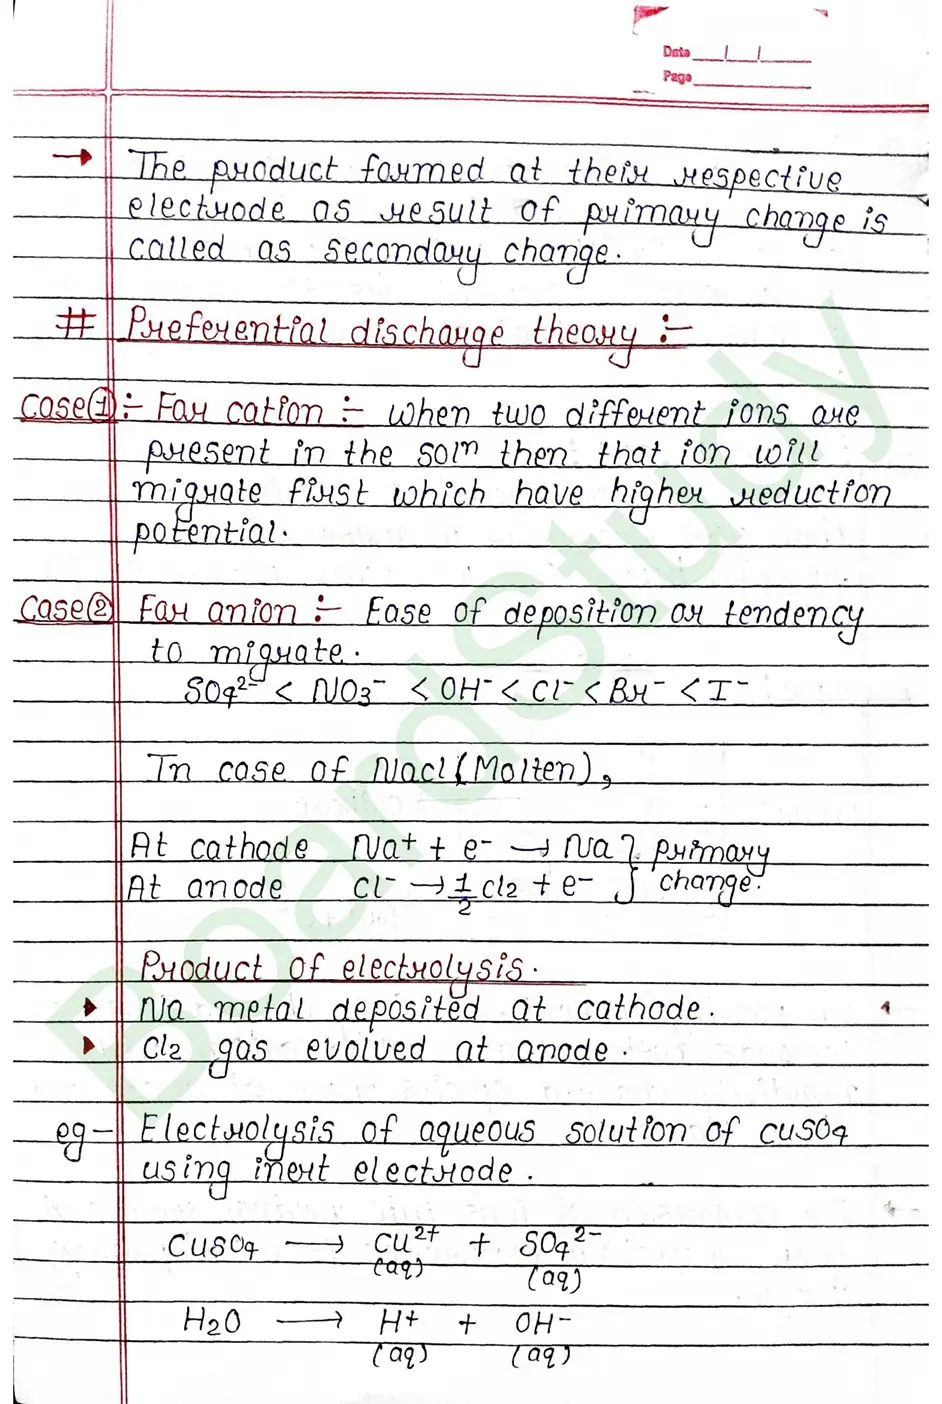 Date / /
Page
→ The product formed at their respective
electrode as result of primary change is
called as secondary change.
# Preferential discharge theory :-
Case① :- For cation :- when two different ions are
present in the solⁿ then that ion will
migrate first which have higher reduction
potential.
Case② For anion :- Ease of deposition or tendency
to migrate.
SO₄²⁻ < NO₃⁻ < OH⁻ < Cl⁻ < Br⁻ < I⁻
In case of Nacl (Molten),
At cathode Na⁺ + e⁻ → Na } primary
At anode Cl⁻ → 1/2 Cl₂ + e⁻ } change.
Product of electrolysis.
Na metal deposited at cathode.
Cl₂ gas evolved at anode.
eg - Electrolysis of aqueous solution of cuSO₄
using inert electrode.
CuSO₄ → Cu²⁺ + SO₄²⁻
(aq) (aq)
H₂O → H⁺ + OH⁻
(aq) (aq)
BoardStudy